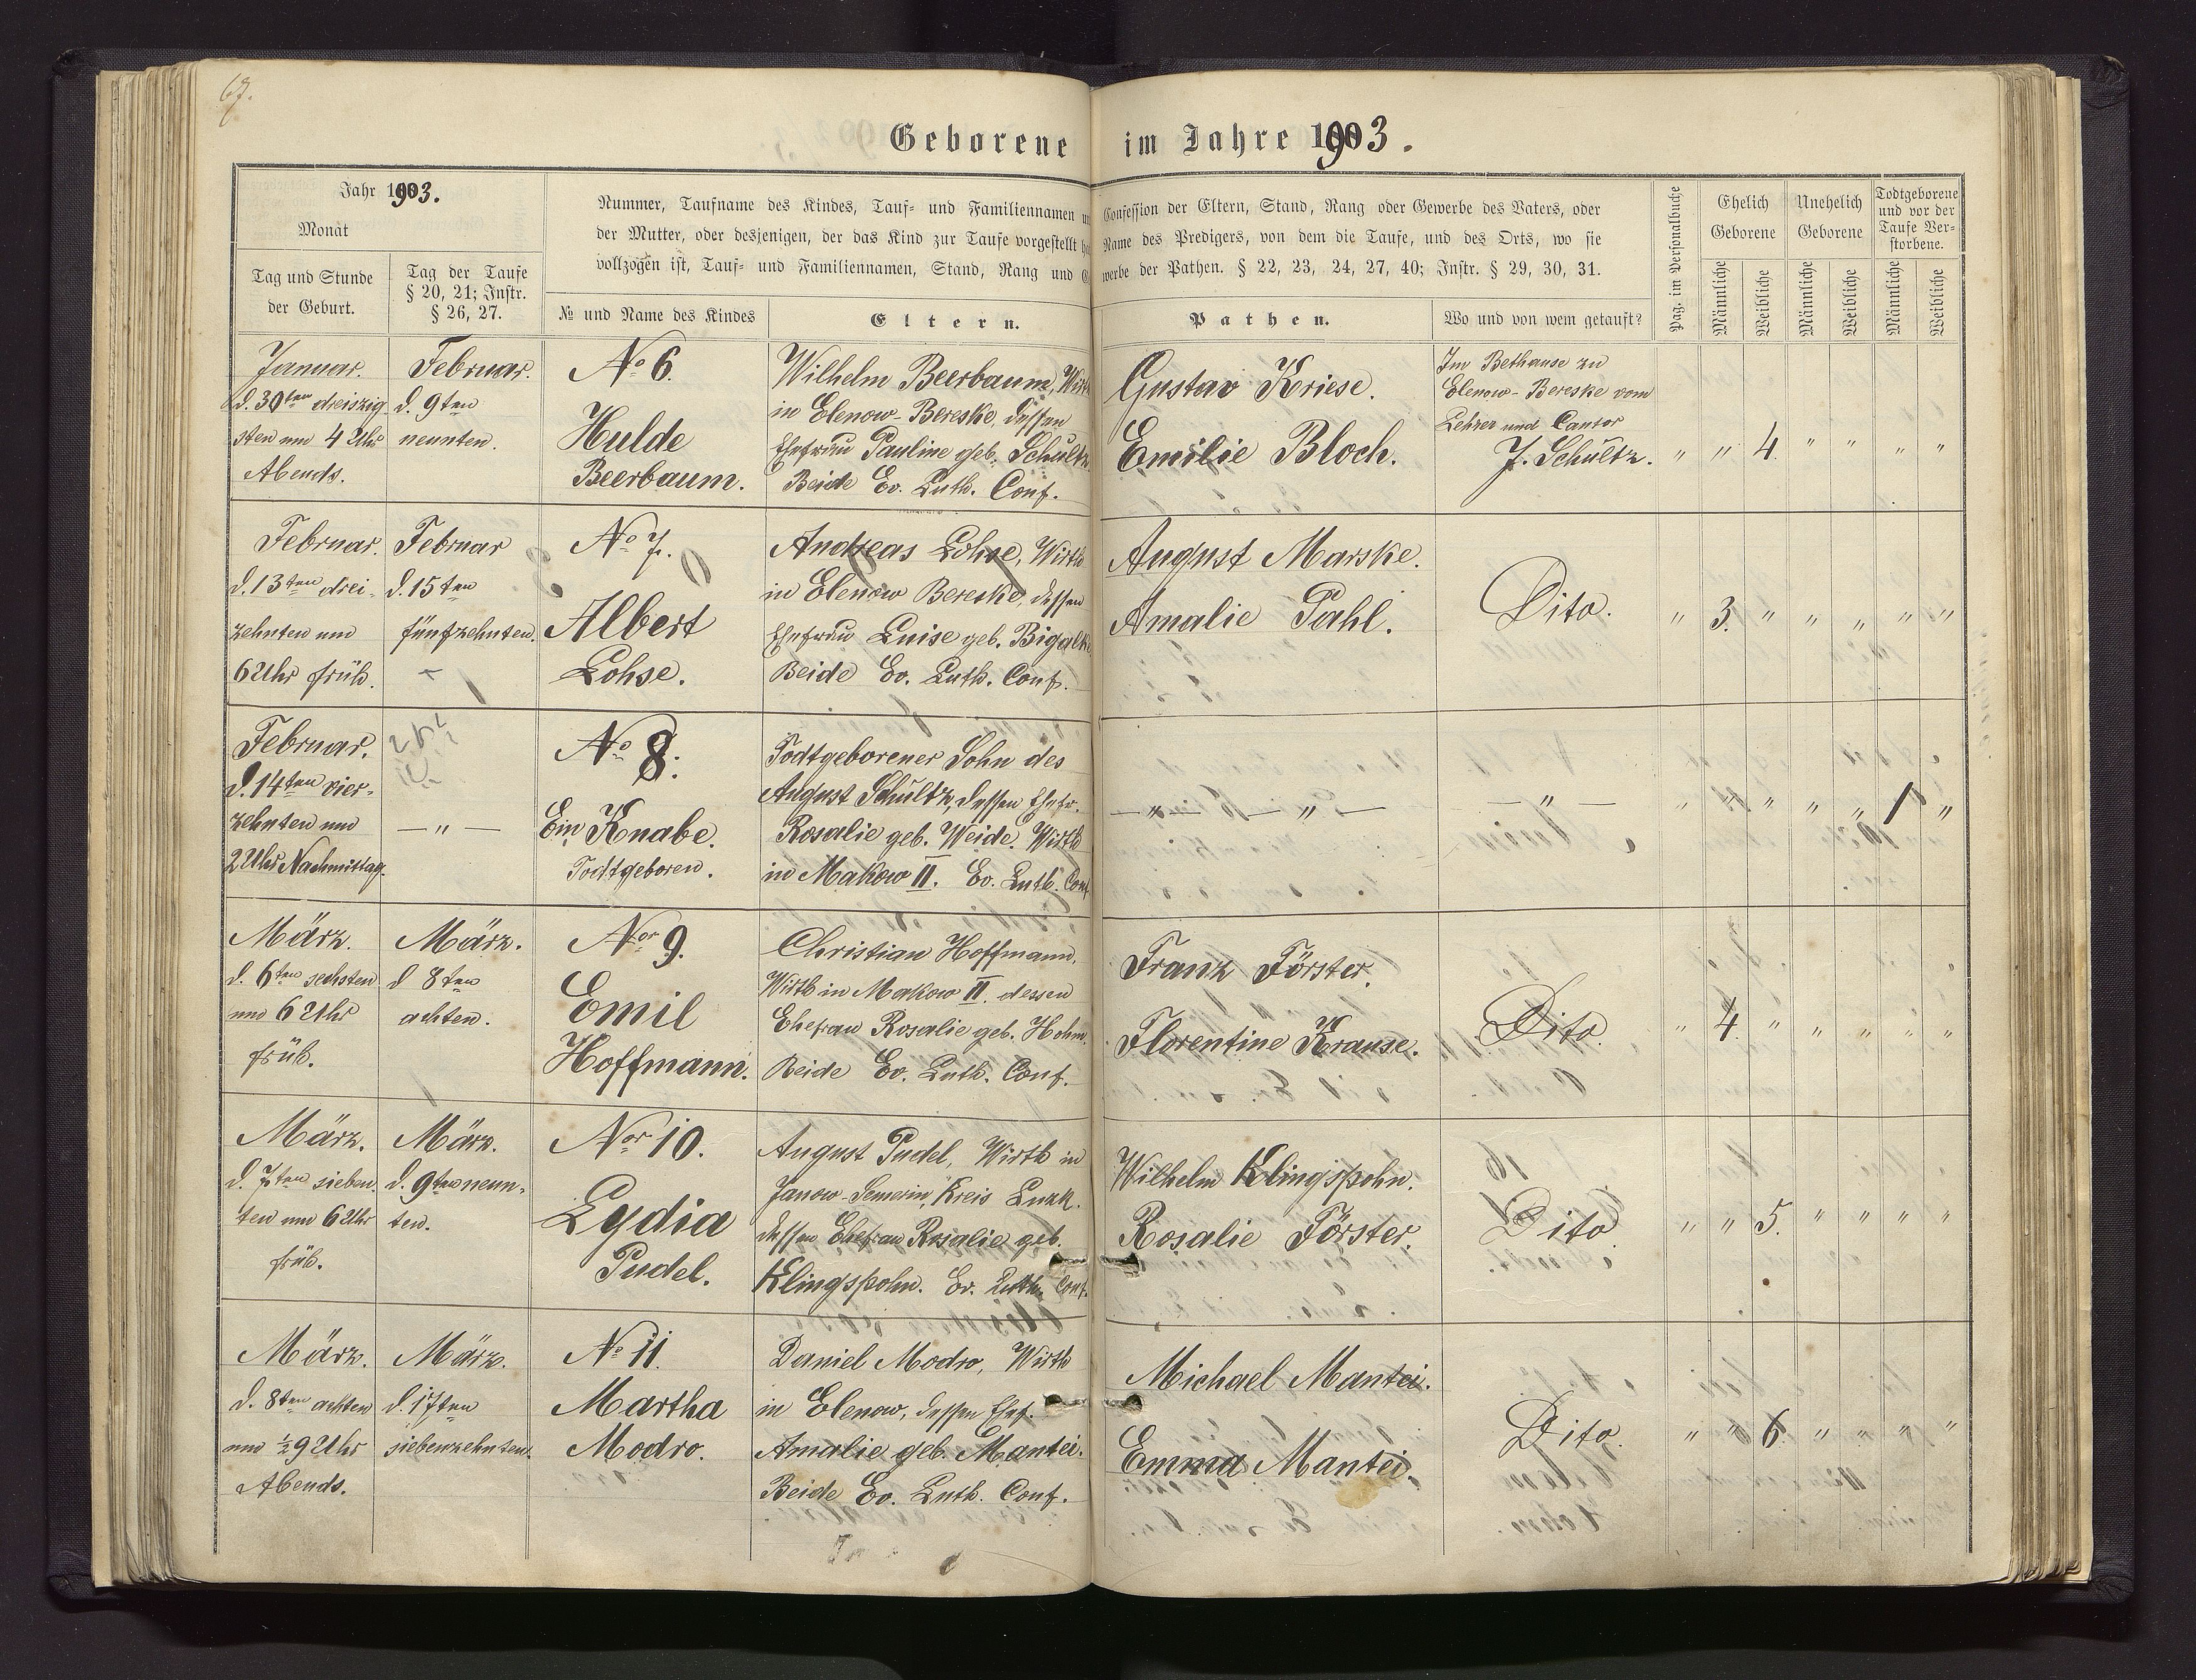 67.
Geborene im Jahre 1903.
Jahr 1903.
Monat
Tag und Stunde
der Geburt.
Tag der Taufe
§ 20, 21; Instr.
§ 26, 27.
Nummer, Taufname des Kindes, Tauf- und Familiennamen
der Mutter, oder desjenigen, der das Kind zur Taufe vorgestellt
vollzogen ist, Tauf- und Familiennamen, Stand, Rang und
№ und Name des Kindes
Eltern.
Confession der Eltern, Stand, Rang oder Gewerbe des Vaters, oder
Name des Predigers, von dem die Taufe, und des Orts, wo sie
werbe der Pathen. § 22, 23, 24, 27, 40; Instr. § 29, 30, 31.
Pathen.
Wo und von wem getauft?
Pag. im Personalbuche
Ehelich
Geborene
Unehelich
Geborene
Todtgeborene
und vor der
Taufe Ver-
storbene.
Männliche
Weibliche
Männliche
Weibliche
Männliche
Weibliche
Januar.
d. 30ten dreiszig
sten um 4 Uhr
Abends.
Februar.
d. 9ten
neunten.
No 6.
Hulde
Beerbaum.
Wilhelm Beerbaum, Wirth
in Elenow-Bereske, dessen
Ehefrau Pauline geb. Schultz
Beide Ev. Luth. Conf.
Gustav Kriese.
Emilie Bloch.
Im Bethause zu
Elenow-Bereske vom
Lehrer und Cantor
J. Schultz.
" " 4. " " " "
Februar.
d. 13ten drei-
zehnten um
6 Uhr früh.
Februar
d. 15ten
fünfzehnten.
No 7.
Albert
Lohse.
Andreas Lohse, Wirth
in Elenow Bereske, dessen
Ehefrau Luise geb. Bigalke
Beide Ev. Luth. Conf.
August Marske.
Amalie Pahl.
Dito.
" 3. " " " " "
Februar.
d. 14ten vier-
zehnten um
2 Uhr Nachmittag.
— " —
No 8.
Ein Knabe.
Todtgeboren.
Todtgeborener Sohn des
August Schultz, dessen Ehefr.
Rosalie geb. Weide. Wirth
in Makow II. Ev. Luth. Conf.
— " — — " —
— " —
" " " " " 1 "
März.
d. 6ten sechsten
um 6 Uhr
früh.
März.
d 8ten
achten.
Nor 9.
Emil
Hoffmann.
Christian Hoffmann,
Wirth in Makow II. dessen
Ehefrau Rosalie geb. Hohm.
Beide Ev. Luth. Conf.
Franz Förster.
Florentine Krause.
Dito.
" 4. " " " " "
März.
d. 7ten sieben-
ten um 6 Uhr
früh.
März.
d. 9ten neun-
ten.
Nor 10.
Lydia
Pudel.
August Pudel, Wirth in
Janow-Semerin, Kreis Luzk.
dessen Ehefrau Rosalie geb.
Klingspohn. Ev. Luth. Conf.
Wilhelm Klingspohn.
Rosalie Förster.
Dito
" " 5. " " " "
März.
d. 8ten achten
um ½9 Uhr
Abends.
März.
d. 17ten
siebenzehnten.
No 11.
Martha
Modro.
Daniel Modro, Wirth
in Elenow, dessen Ehef.
Amalie geb. Mantei.
Beide Ev. Luth. Conf.
Michael Mantei.
Emma Mantei.
Dito.
" " 6. " " " "